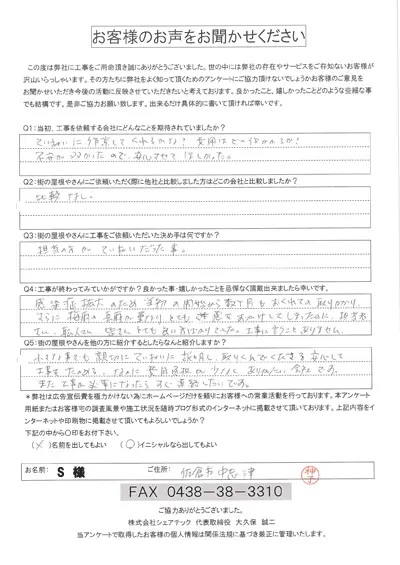 お客様のお声をお聞かせください
この度は弊社に工事をご用命頂き誠にありがとうございました。世の中には弊社の存在やサービスをご存知ないお客様が
沢山いらっしゃいます。その方たちに弊社をよく知って頂くためのアンケートにご協力頂けないでしょうかお客様のご意見を
お聞かせいただき今後の活動に反映させていただきたいと考えております。良かったこと、嬉しかったことどのような些細な事
でも結構です。是非ご協力お願い致します。出来るだけ具体的に書いて頂ければ幸いです。
Q1:当初、工事を依頼する会社にどんなことを期待されていましたか?
ていねいに作業してくれるかな? 費用はどの位かかるか?
不安が あったので、安心させて ほしかった。
Q2:街の屋根やさんにご依頼いただく際に他社と比較しました方はどこの会社と比較しましたか?
比較なし。
Q3:街の屋根やさんに工事をご依頼いただいた決め手は何ですか?
担当の方が ていねいだった事。
Q4:工事が終わってみていかがですか?良かった事・嬉しかったことを忌憚なく頂戴出来ましたら幸いです。
感染症拡大のため 当初の開始から数ヶ月もおくれての取りかかり、
さらに 梅雨の長雨が重なり とても
さん、職人さん 皆さん とても 良い方ばかりでした。工事に言うことありません。
Q5:街の屋根やさんを他の方に紹介するとしたらなんと紹介しますか?
小さな事でも 親切に ていねいに 説明し、取りくんでくださる 安心して
工事をたのめる、
また 工事が必要になったら すぐ 連絡したいです。
*弊社は広告宣伝費を極力かけない為にホームページだけを頼りにお客様への営業活動を行っております。本アンケート
用紙またはお客様宅の調査風景や施工状況を随時ブログ形式のインターネットに掲載させて頂いております。上記内容をイ
ンターネットや印刷物に掲載させて頂いてもよろしいでしょうか?
下記の中から〇印をお付下さい。
( ) 名前を出してもよい ( ) イニシャルなら出してもよい
お名前: S 様 ご住所: 佐倉市中志津
FAX 0438-38-3310
ご協力ありがとうございました。
株式会社シェアテック 代表取締役 大久保 誠二
当アンケートで取得したお客様の個人情報は関係法規に基づき厳正に管理いたします。